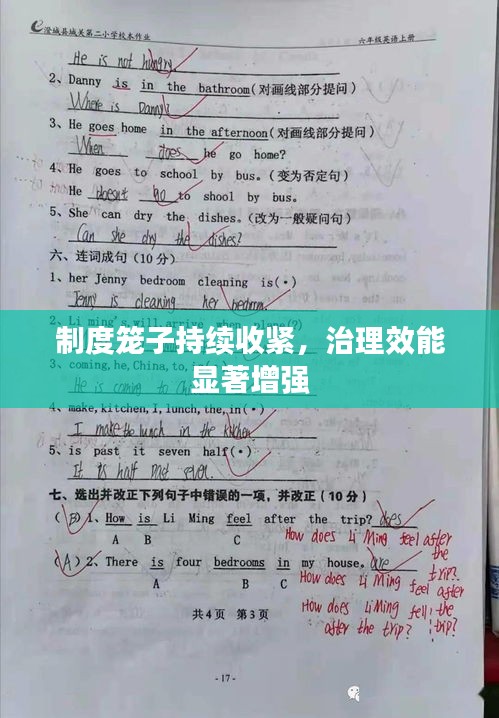 澄城县城关第二小学校本作业 六年级英语上册
He is not hungry
2、Danny is in the bathroom(对画线部分提问)
Where is Danny?
3、He goes home in the afternoon(对画线部分提问)
When does he go home?
4、He goes to school by bus.(变为否定句)
He doesn't go to shool by bus.
5、She can dry the dishes.(改为一般疑问句)
Can she dry the dishes?
六、连词成句(10分)
1、her Jenny bedroom cleaning is(•)
Jenny is cleaning her bedroom.
制度笼子持续收紧，治理效能
显著增强
3、coming,he,China,to,
4、make,kitchen,I,lunch,the,in(•)
I make the lunch in the kitchen
5、is past it seven half(•)
It is half past seven.
七、选出并改正下列句子中错误的一项，并改正(10分)
(B)1、How is Li Ming feel after the trip? does
A B C
How does Li Ming feel after the trip?
(A)2、There is four bedrooms in my house. are
A B C
How does Li Ming feel after the trip?
How does Li Ming fell the
after the trip? trip?
共4页 第3页
-17-